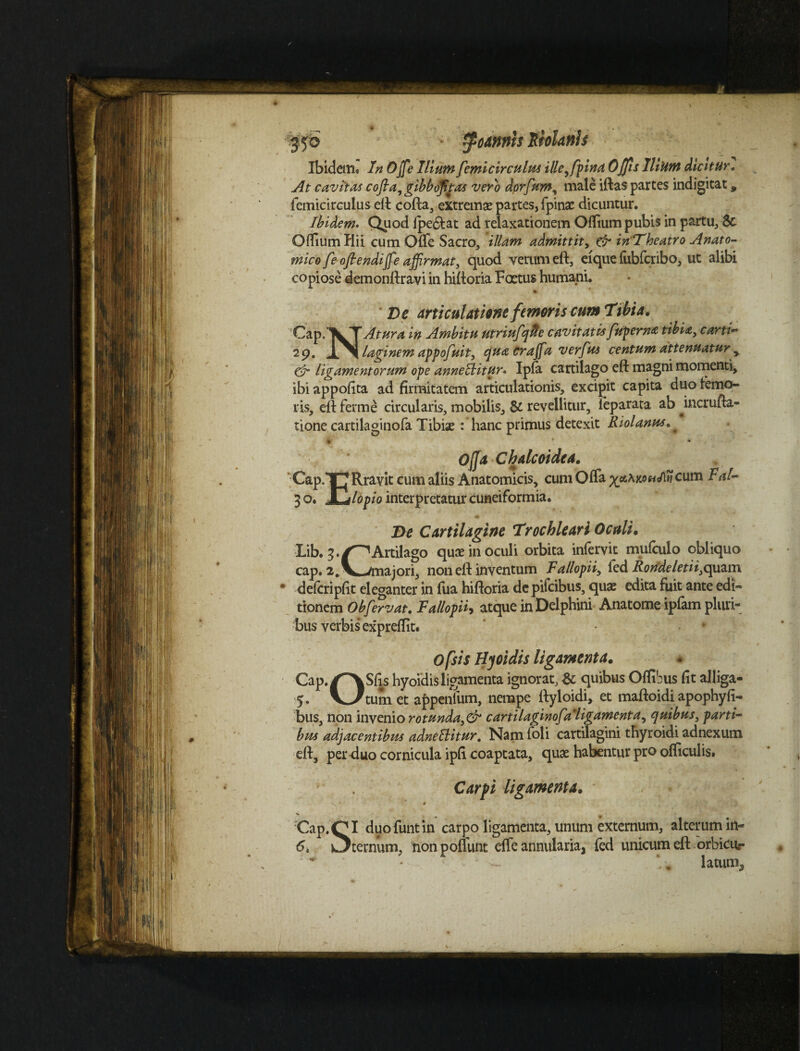 350 Joannis Riolanis
Ibidem. In Osse Ilium semicirculus ille, spina Ossis Ilium dicitur.
At cavitas costa, gibbositas vero dorsum, malè istas partes indigitat,
semicirculus est costa, extremæ partes, spinæ dicuntur.
Ibidem. Quod spectat ad relaxationem Ossium pubis in partu, &
Ossium Hii cum Osse Sacro, illam admittit, & in Theatro Anato-
mico se ostendisse affirmat, quod verum est, eique subscribo, ut alibi
copiosè demonstravi in historia Fœtus humani.
De articulatione femoris cum Tibia.
Cap. NAtura in Ambitu utriusque cavitatis supernæ tibiæ, carti-
29. laginem apposuit, quæ crassa versus centum attenuatur,
& ligamentorum ope annectitur. Ipsa cartilago est magni momenti,
ibi apposita ad firmitatem articulationis, excipit capita duo femo-
ris, est fermè circularis, mobilis, & revellitur, separata ab incrusta-
tione cartilaginosa Tibiæ : hanc primus detexit Riolanus.
Ossa Chalcoidea.
Cap. ERravit cum aliis Anatomicis, cum Ossa χαλκοειδῆ cum Fal-
30. lopio interpretatur cuneiformia.
De Cartilagine Trochleari Oculi.
Lib. 3. CArtilago quæ in oculi orbita inservit musculo obliquo
cap. 2. majori, non est inventum Fallopii, sed Rondeletii, quam
descripsit eleganter in sua historia de piscibus, quæ edita fuit ante edi-
tionem Observat. Fallopii, atque in Delphini Anatome ipsam pluri-
bus verbis expressit.
Ossis Hyoidis ligamenta.
Cap. OSsis hyoidis ligamenta ignorat, & quibus Ossibus sit alliga-
5. tum et appensum, nempe styloidi, et mastoidi apophysi-
bus, non invenio rotunda, & cartilaginosa ligamenta, quibus, parti-
bus adjacentibus adnectitur. Nam soli cartilagini thyroidi adnexum
est, per duo cornicula ipsi coaptata, quæ habentur pro officulis.
Carpi ligamenta.
Cap. SI duo sunt in carpo ligamenta, unum externum, alterum in-
6. ternum, non possunt esse annularia, sed unicum est orbicu-
latum,